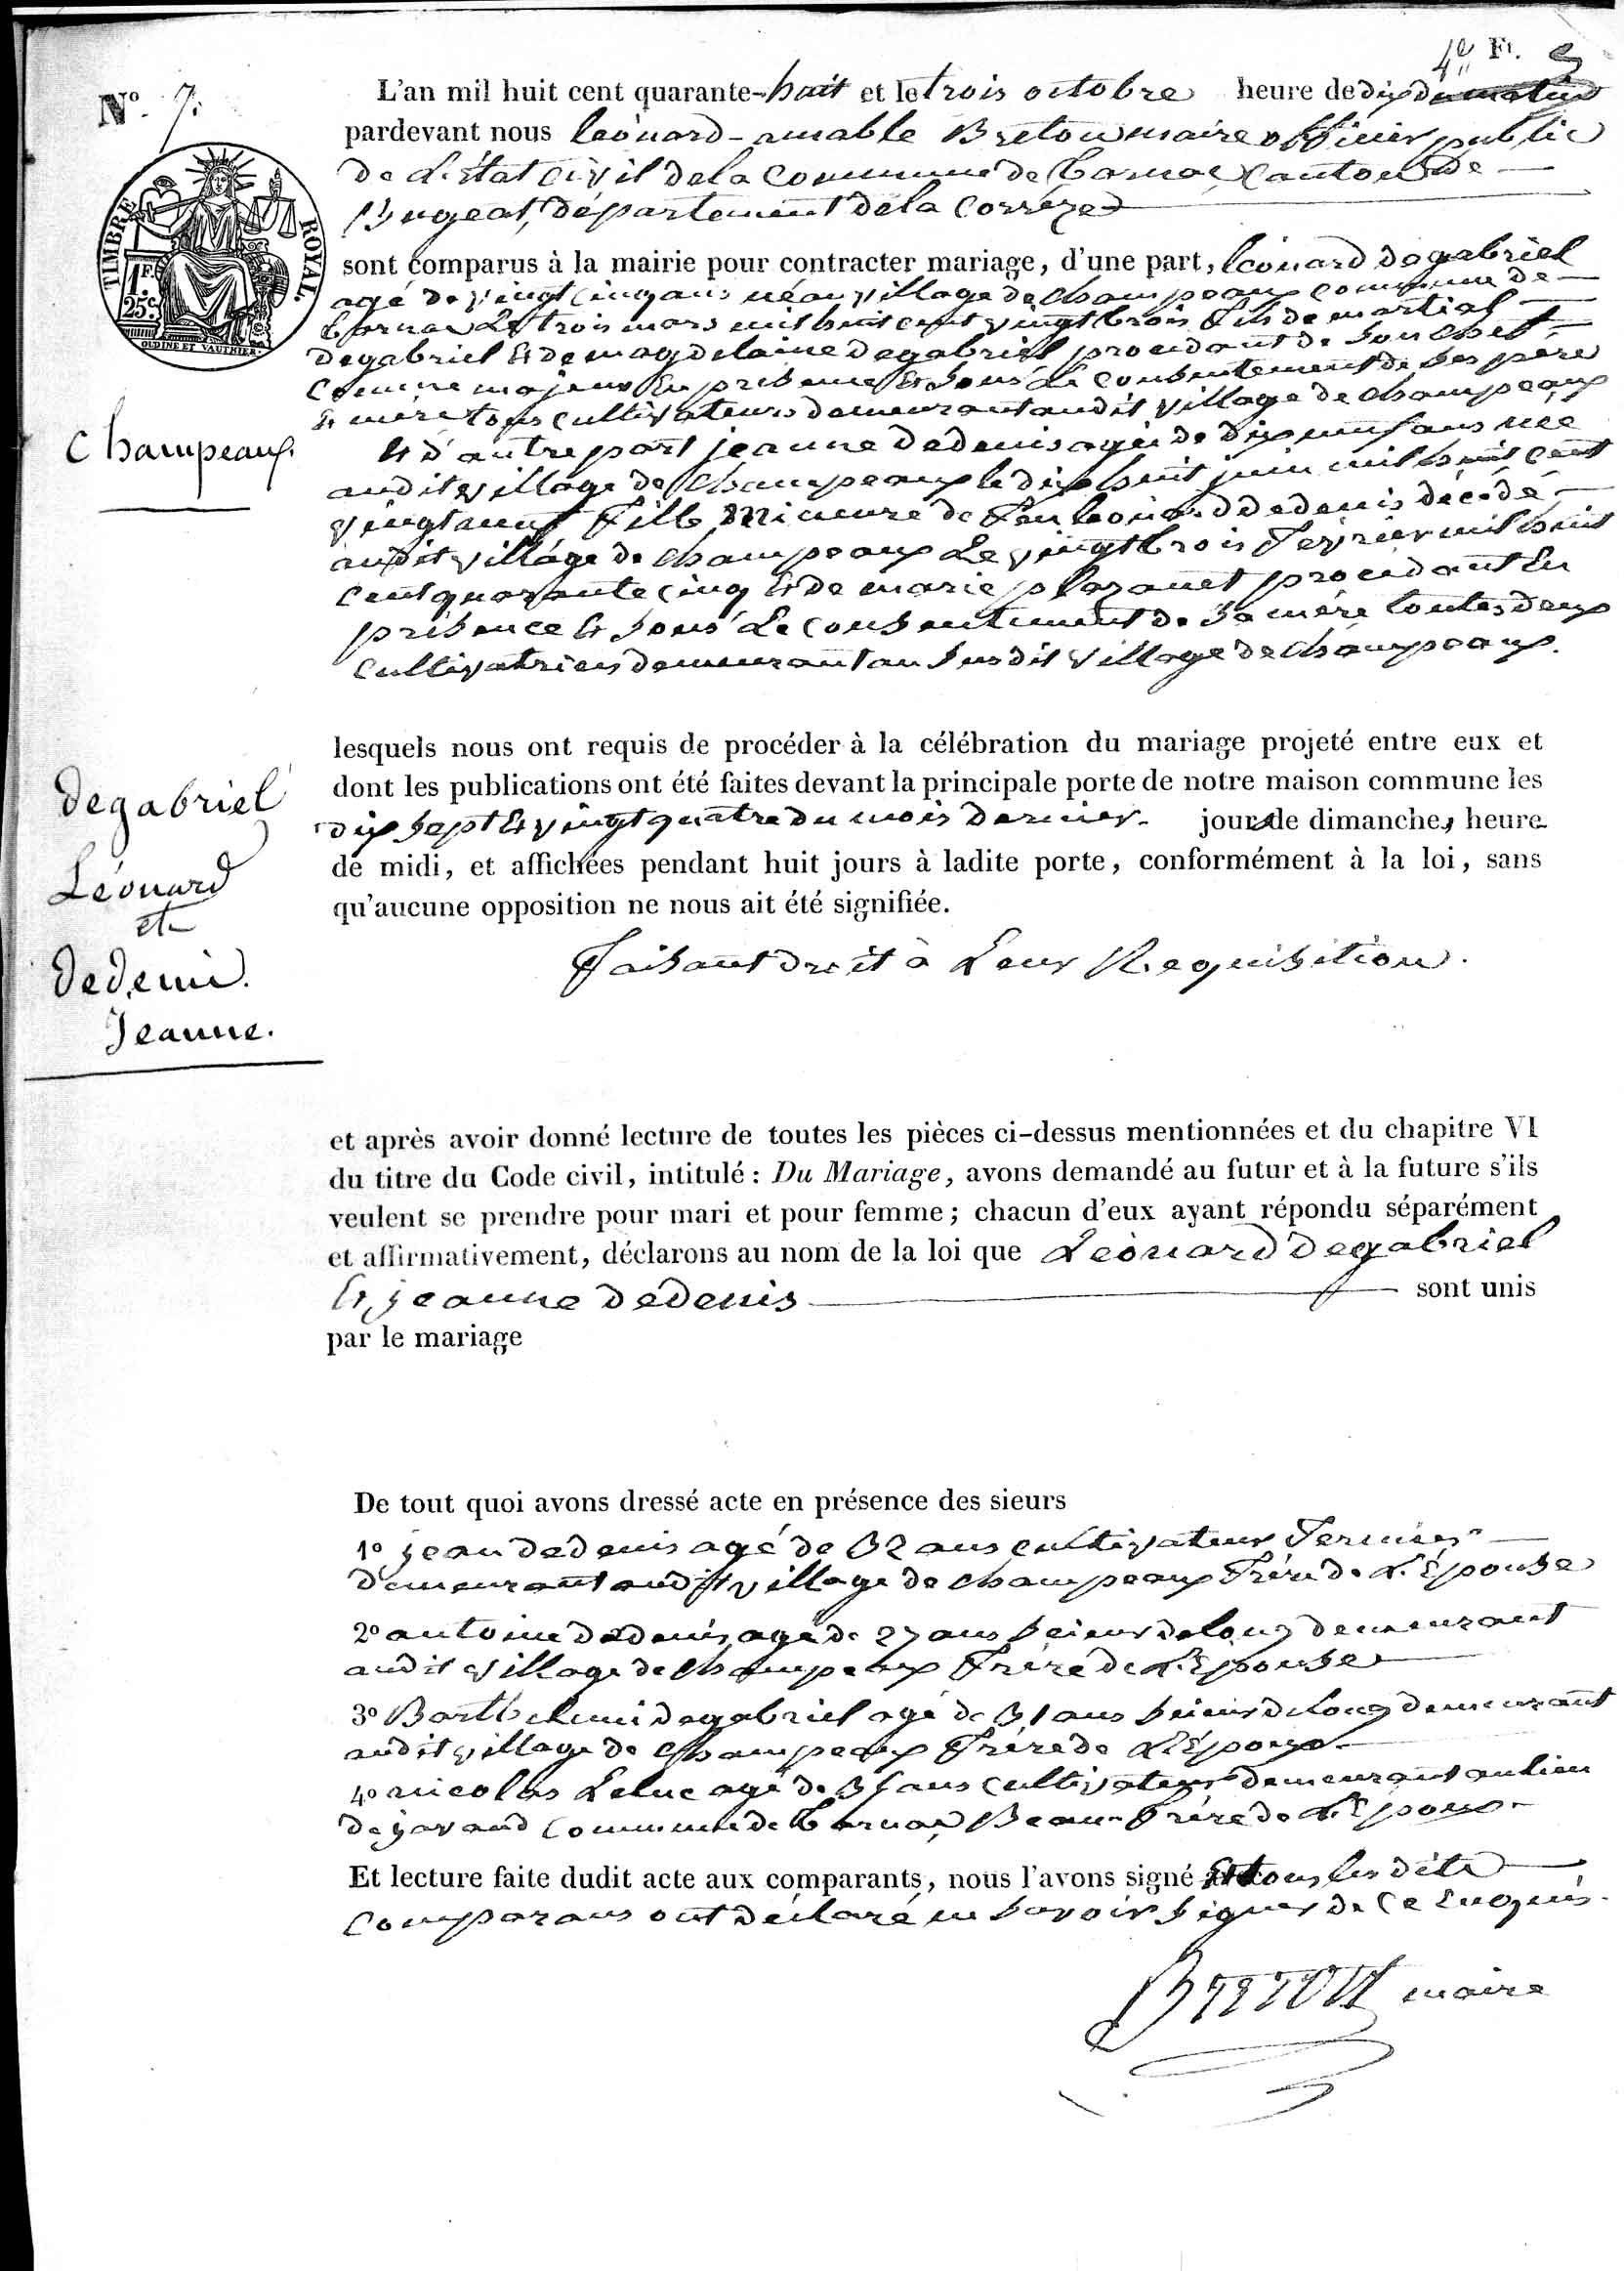 4e Ft.
N° 7.
L'an mil huit cent quarante-huit et le trois octobre heure de dix du matin
pardevant nous léonard-amable Breton maire officier public
de L'état civil de la Commune de tarnac Canton de
Bugeat, département de la Corrèze
TIMBRE ROYAL.
1F. 25c.
OUDINE ET VAUTHIER.
sont comparus à la mairie pour contracter mariage, d'une part, léonard degabriel
agé de vingt cinq ans né au village de champeaux commune de
tarnac Le trois mars mil huit cent vingt trois fils de martial
degabriel Et de magdelaine degabriel procedant de son chef
Comme majeur En présence Et sous Le consentement de ses père
Et mère tous cultivateurs demeurant audit village de champeaux
Champeaux.
Et d'autre part jeanne dedenis agée de dix neuf ans née
audit village de champeaux le dix huit juin mil huit cent
vingt neuf fille Mineure de feu léonard dedenis décédé
audit village de champeaux Le vingt trois février mil huit
cent quarante cinq Et de marie plazanet procedant En
présence Et sous Le consentement de sa mère toutes deux
cultivatrices demeurant au susdit village de champeaux.
lesquels nous ont requis de procéder à la célébration du mariage projeté entre eux et
dont les publications ont été faites devant la principale porte de notre maison commune les
dix sept Et vingt quatre du mois dernier. jours de dimanche, heure
de midi, et affichées pendant huit jours à ladite porte, conformément à la loi, sans
qu'aucune opposition ne nous ait été signifiée.
degabriel
Léonard
et
dedenis.
Jeanne.
Faisant droit à Leur Requisition.
et après avoir donné lecture de toutes les pièces ci-dessus mentionnées et du chapitre VI
du titre du Code civil, intitulé : Du Mariage, avons demandé au futur et à la future s'ils
veulent se prendre pour mari et pour femme ; chacun d'eux ayant répondu séparément
et affirmativement, déclarons au nom de la loi que Léonard degabriel
Et jeanne dedenis sont unis
par le mariage
De tout quoi avons dressé acte en présence des sieurs
1° jean dedenis agé de 32 ans cultivateur Fermier
demeurant audit village de champeaux Frère de L'Épouse
2° antoine dedenis agé de 27 ans scieur de long demeurant
audit village de champeaux Frère de L'Épouse
3° Barthelemi degabriel agé de 31 ans scieur de long demeurant
audit village de champeaux Frère de L'Époux
4° nicolas Leluc agé de ans cultivateur demeurant au lieu
de commune de tarnac Beau-Frère de L'Époux
Et lecture faite dudit acte aux comparants, nous l'avons signé Et tous les dits
Comparans ont déclaré ne savoir signer de ce Enquis.
BRETON maire